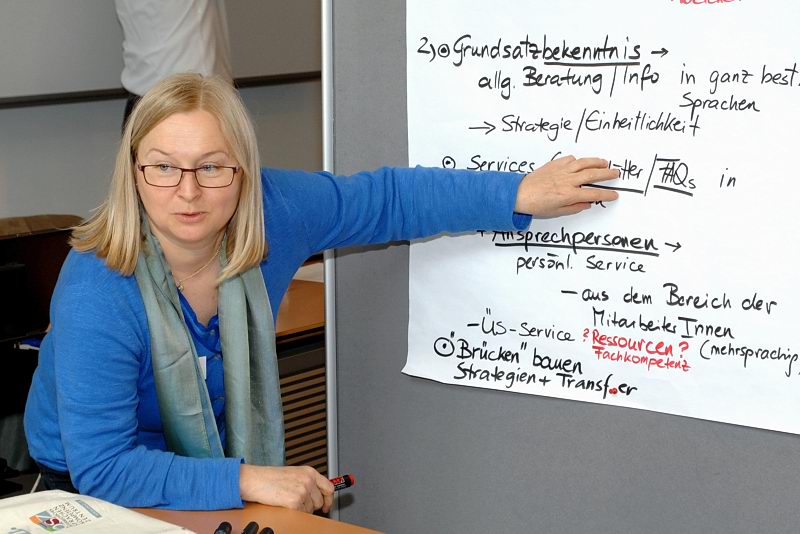 2.) Grundsatzbekenntnis →
allg. Beratung / Info in ganz best.
Sprachen
→ Strategie / Einheitlichkeit
Services / FAQs in
+ Ansprechpersonen →
persönl. Service
— aus dem Bereich der
MitarbeiterInnen
- ÜS-Service ?Ressourcen? (mehrsprachig
Fachkompetenz
"Brücken" bauen
Strategien + Transfer